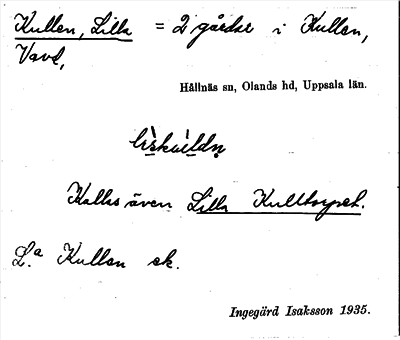 Kullen, Lilla = 2 gårdar i Kullen,
Vavd,
Hållnäs sn, Olands hd, Uppsala län.
Kallas även Lilla Kulltorpet.
L:a Kullen ek.
Ingegärd Isaksson 1935.